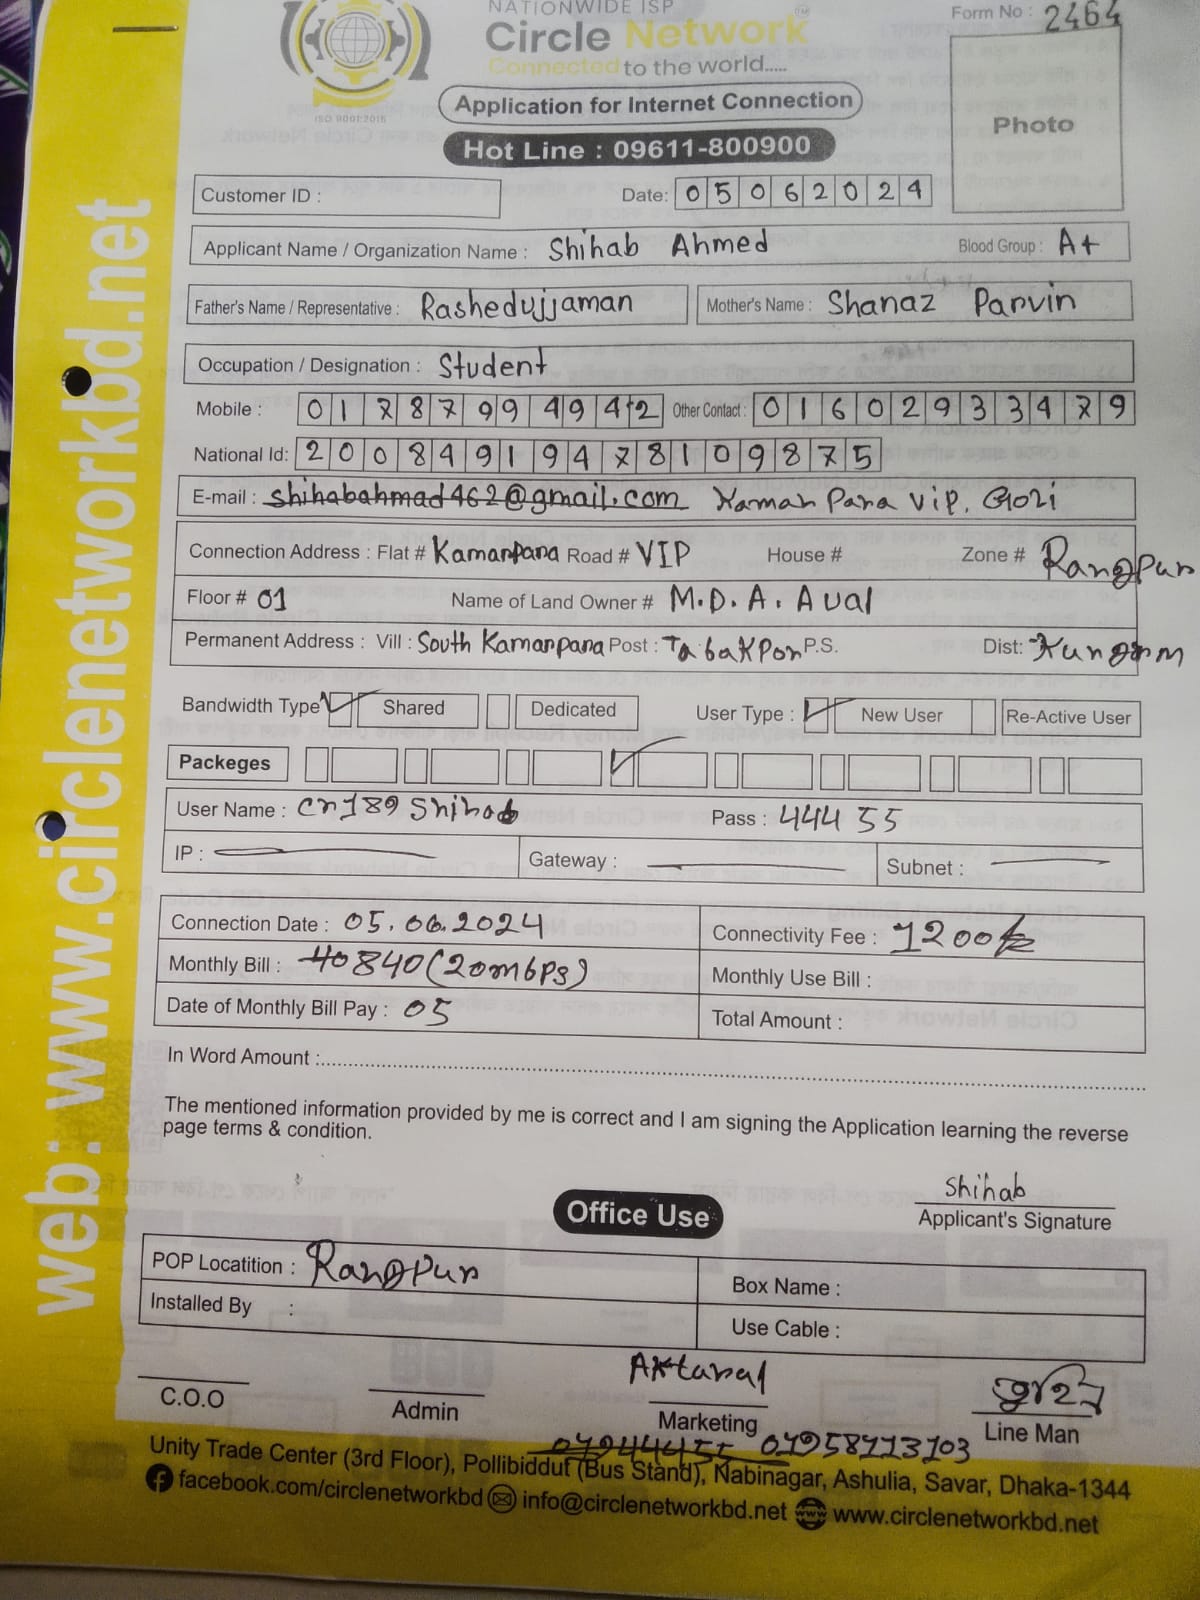 NATIONWIDE ISP
Circle Network
Connected to the world.....
ISO 9001:2015
Form No : 2464
Application for Internet Connection
Hot Line : 09611-800900
Photo
Customer ID :
Date: 05062024
Applicant Name / Organization Name : Shihab Ahmed Blood Group : A+
Father's Name / Representative : Rashedujjaman Mother's Name : Shanaz Parvin
Occupation / Designation : Student
Mobile : 01787994942 Other Contact : 01602933479
National Id: 20084919478109875
E-mail : shihabahmad462@gmail.com Kamar Para Vip. Goli
Connection Address : Flat # Kamarpara Road # VIP House # Zone # Rangpur
Floor # 01 Name of Land Owner # M.D. A. Aual
Permanent Address : Vill : South Kamarpara Post : P.S. Dist:
Bandwidth Type Shared Dedicated User Type : New User Re-Active User
Packeges
User Name : cn189shihab Pass : 44455
IP : Gateway : Subnet :
Connection Date : 05.06.2024 Connectivity Fee : 1200
Monthly Bill : 840 (20mbps) Monthly Use Bill :
Date of Monthly Bill Pay : 05 Total Amount :
In Word Amount :
The mentioned information provided by me is correct and I am signing the Application learning the reverse
page terms & condition.
Shihab
Applicant's Signature
Office Use
POP Locatition : Rangpur Box Name :
Installed By : Use Cable :
C.O.O Admin Marketing Line Man
Unity Trade Center (3rd Floor), Pollibiddut (Bus Stand), Nabinagar, Ashulia, Savar, Dhaka-1344
facebook.com/circlenetworkbd info@circlenetworkbd.net www.circlenetworkbd.net
web: www.circlenetworkbd.net